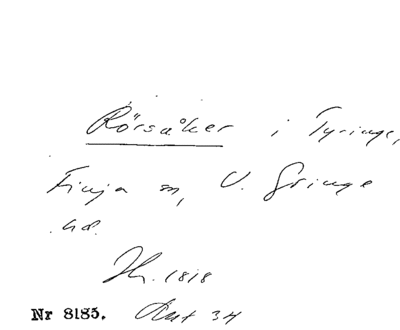 Rörsåker i Tyringe,
Finja sn, V. Göinge
hd.
Hr. 1818
Nr 8185. Akt 34